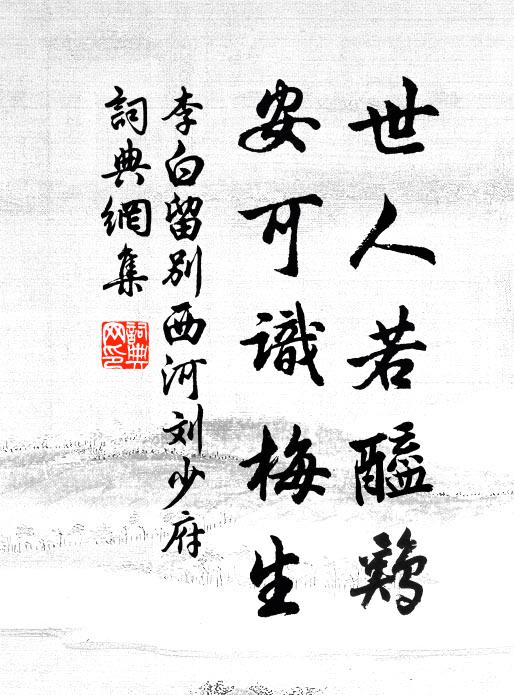 世人若醯鷄
安可識梅生
李白留别西河刘少府
詞典網集
詞典
网印